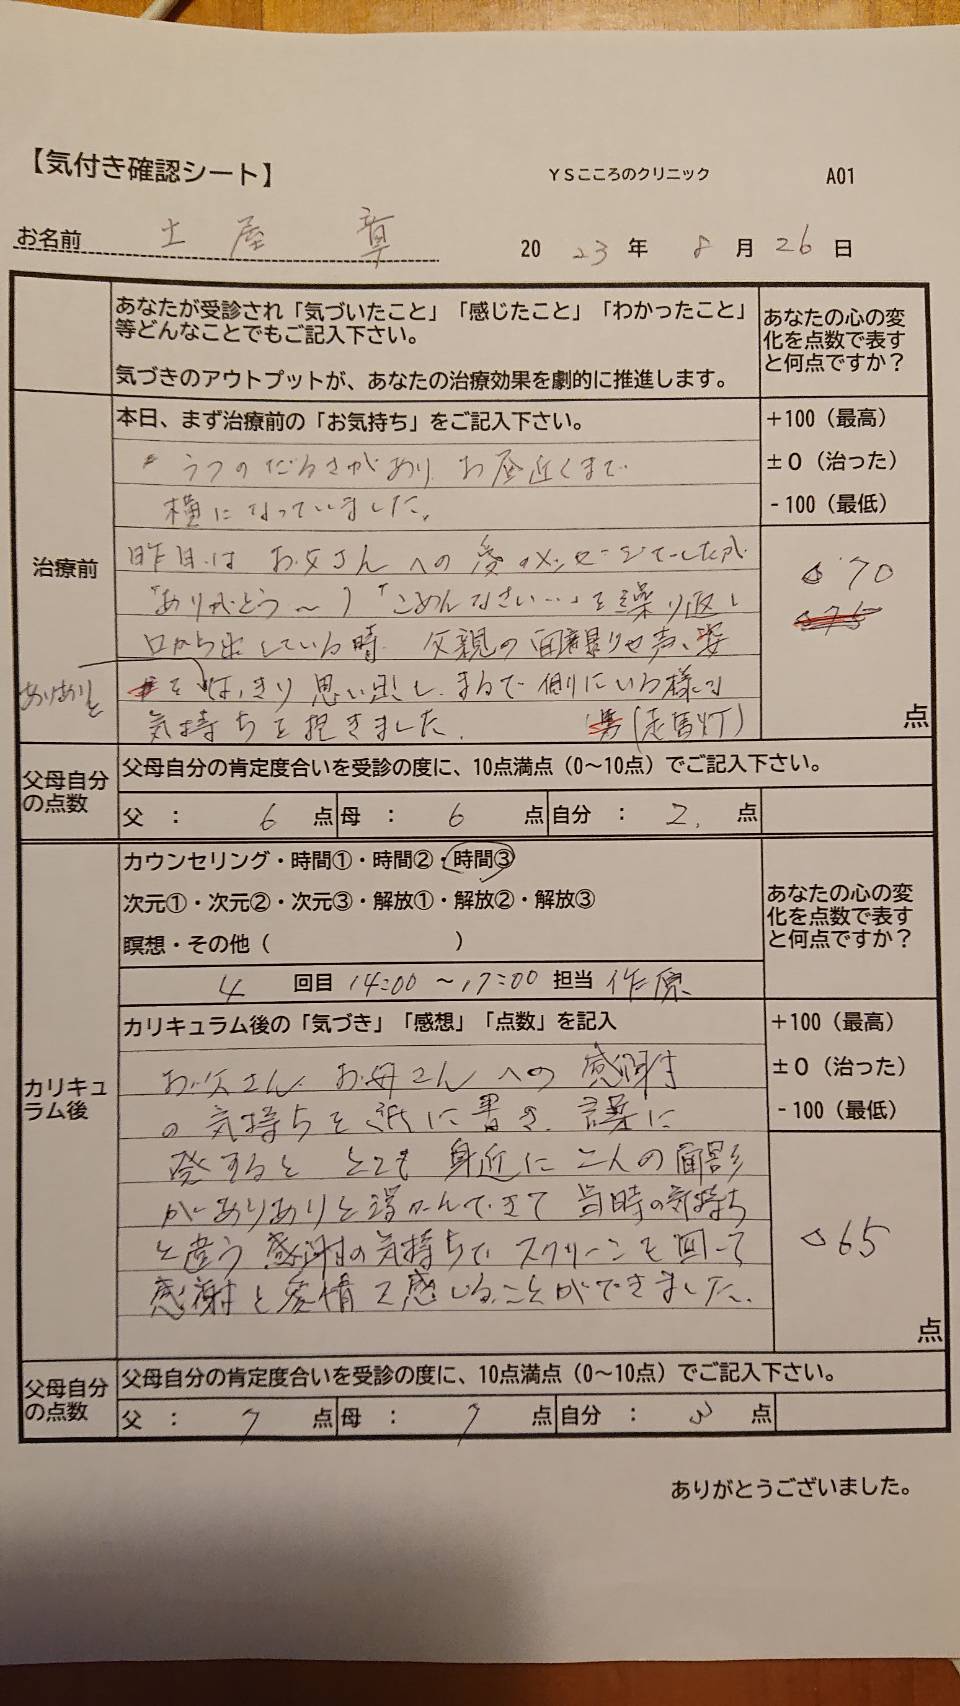 【気付き確認シート】 YSこころのクリニック A01
お名前 土屋 章 2023年 8月 26日
あなたが受診され「気づいたこと」「感じたこと」「わかったこと」
等どんなことでもご記入下さい。
気づきのアウトプットが、あなたの治療効果を劇的に推進します。
あなたの心の変
化を点数で表す
と何点ですか？
治療前
本日、まず治療前の「お気持ち」をご記入下さい。
+100（最高）
±0（治った）
-100（最低）
うつのだるさがあり お昼近くまで
横になっていました。
昨日は お父さんへの愛のメッセージでしたが
「ありがとう〜」「ごめんなさい…」を繰り返し
口から出している時 父親の面影りや声、姿
ありありと
をはっきり思い出し、まるで側にいる様な
気持ちを抱きました。 (走馬灯)
70
点
父母自分
の点数
父母自分の肯定度合いを受診の度に、10点満点（0〜10点）でご記入下さい。
父 ： 6 点 母 ： 6 点 自分 ： 2. 点
カリキュ
ラム後
カウンセリング・時間①・時間②・時間③
次元①・次元②・次元③・解放①・解放②・解放③
瞑想・その他（ ）
4 回目 14:00 〜17:00 担当 作原
あなたの心の変
化を点数で表す
と何点ですか？
カリキュラム後の「気づき」「感想」「点数」を記入
+100（最高）
±0（治った）
-100（最低）
お父さん、お母さんへの感謝
の気持ちを紙に書き、言葉に
発すると とても身近に二人の面影
がありありと浮かんできて 当時の気持ち
と違う感謝の気持ちで スクリーンも回って
感謝と愛情で感じることができました。
65
点
父母自分
の点数
父母自分の肯定度合いを受診の度に、10点満点（0〜10点）でご記入下さい。
父 ： 7 点 母 ： 7 点 自分 ： 3 点
ありがとうございました。